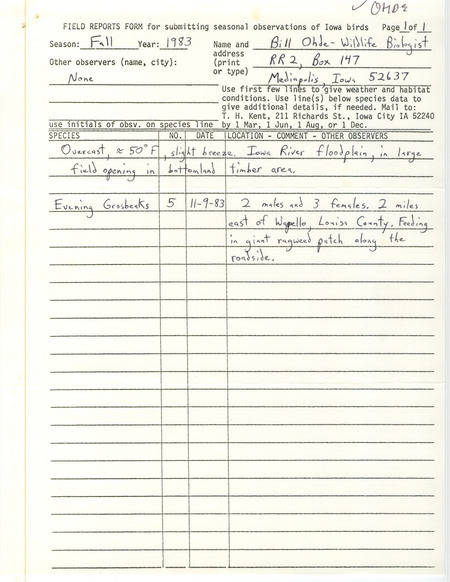 ✓ OHDE
FIELD REPORTS FORM for submitting seasonal observations of Iowa birds Page 1 of 1
Season: Fall Year: 1983 Name and Bill Ohde - Wildlife Biologist
address
Other observers (name, city): (print RR 2, Box 147
or type)
None Mediapolis, Iowa 52637
Use first few lines to give weather and habitat
conditions. Use line(s) below species data to
give additional details, if needed. Mail to:
T. H. Kent, 211 Richards St., Iowa City IA 52240
use initials of obsv. on species line by 1 Mar, 1 Jun, 1 Aug, or 1 Dec.
SPECIES NO. DATE LOCATION - COMMENT - OTHER OBSERVERS
Overcast, ≈ 50°F, slight breeze. Iowa River floodplain, in large
field opening in bottomland timber area.
Evening Grosbeaks 5 11-9-83 2 males and 3 females. 2 miles
east of Wapello, Louisa County. Feeding
in giant ragweed patch along the
roadside.